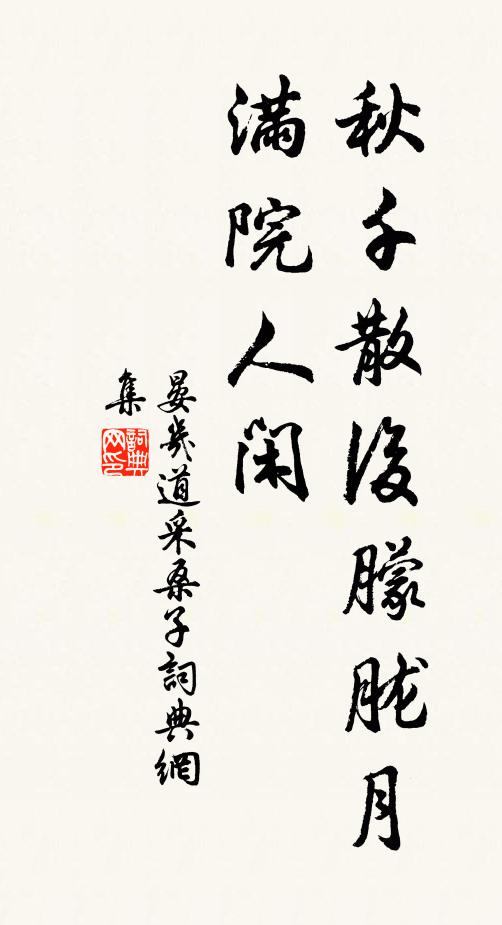 秋千散後朦胧月
滿院人閑
晏幾道采桑子詞典網
集
詞典
网印